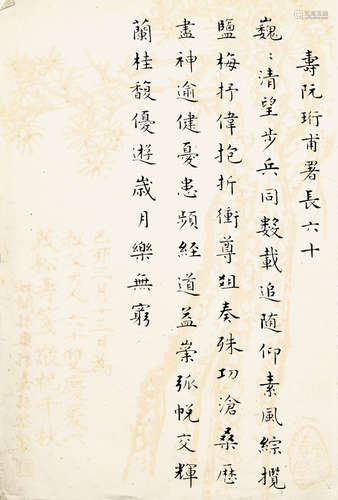 壽阮珩甫署長六十
巍〻清望步兵同數載追隨仰素風綜攬
鹽梅抒偉抱折衝尊俎奏殊功滄桑歷
盡神逾健憂患頻經道益崇弧帨交輝
蘭桂馥優游歲月樂無窮